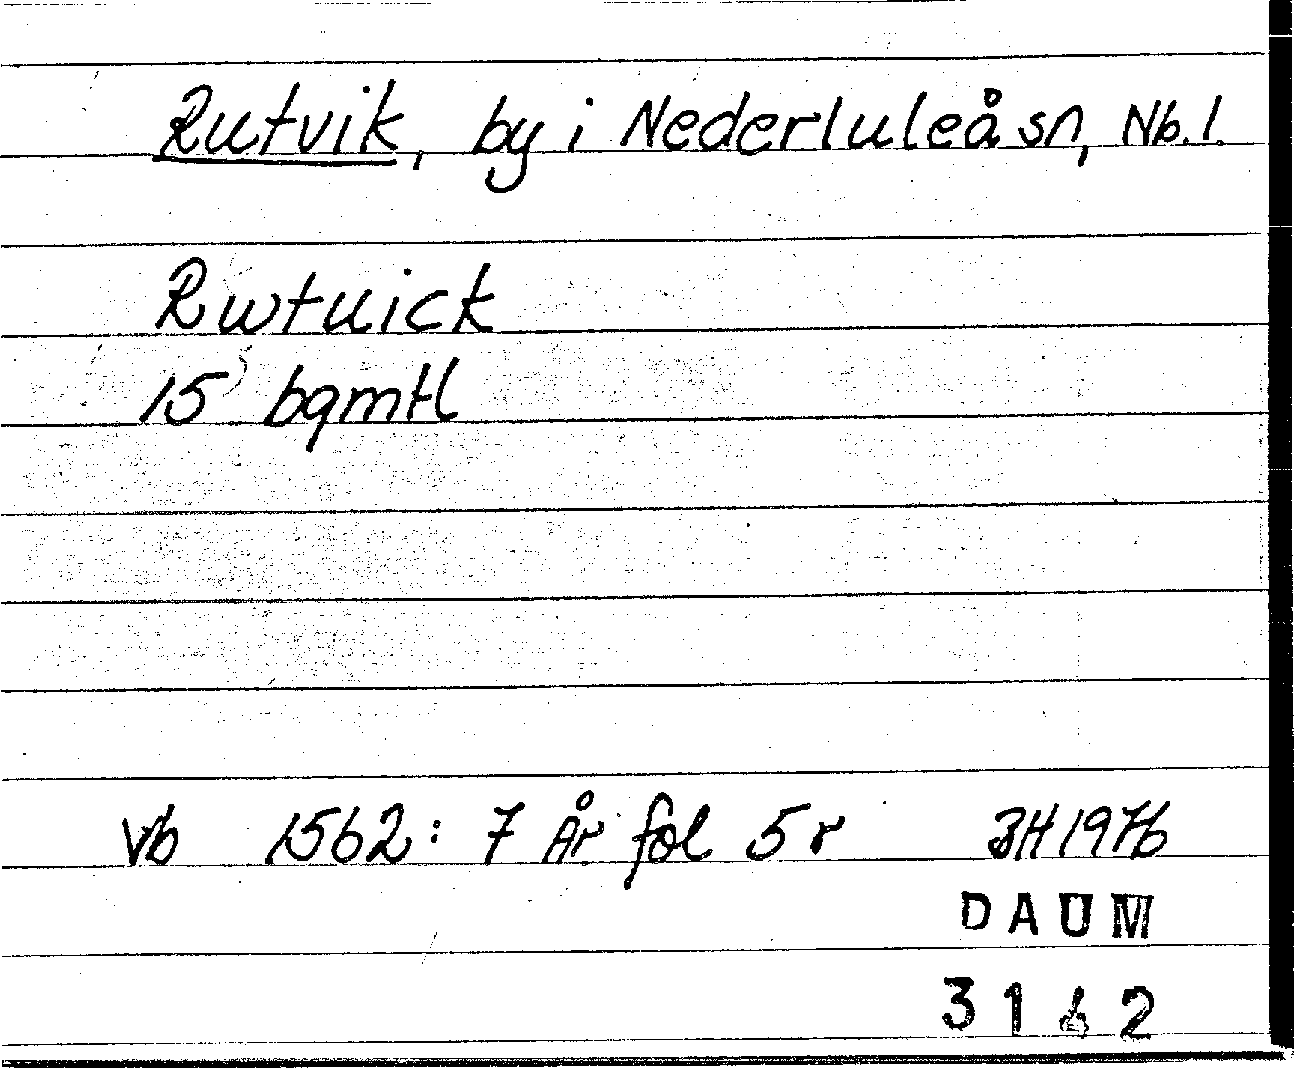 Rutvik, by i Nederluleå sn, Nb. l.
Rwtuick
15 bgmtl
Vb 1562: 7 År fol 5 r BH 1976
DAUM
3162